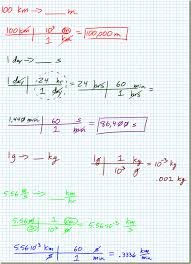 100 km → ___ m
100 km | 10³ m / 1 km = 100,000 m
1 day → ___ s
1 day | 24 hr / 1 day = 24 hrs | 60 min / 1 hr =
1,440 min | 60 s / 1 min = 86,400 s
1g → ___ kg
1g | 1 kg / 10³ g = 10⁻³ kg
.001 kg
5.56 m/s → ___ km/hr
5.56·10⁻³ km
5.56·10⁻³ km | 60 s / 1 min = .3336 km/min